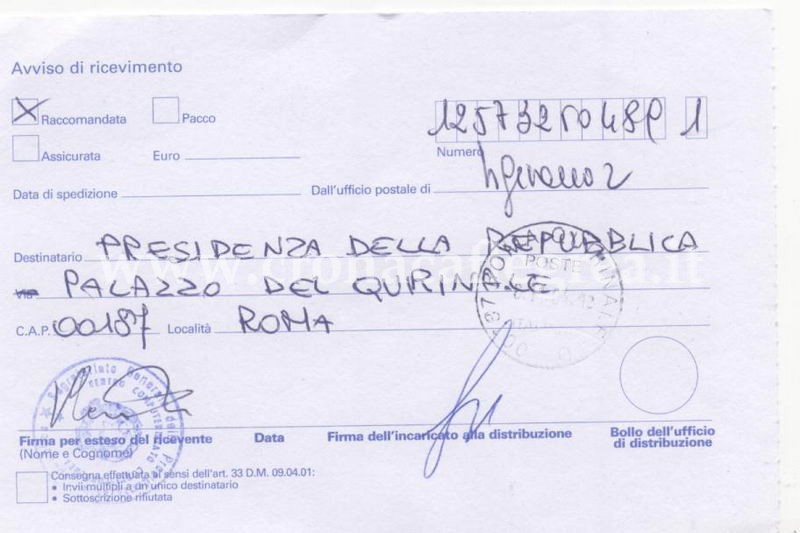 Avviso di ricevimento
Raccomandata Pacco
1257325048 1
Assicurata Euro Numero
Data di spedizione Dall'ufficio postale di
Destinatario PRESIDENZA DELLA REPUBBLICA
www.cronacaflegrea.it
Via PALAZZO DEL QUIRINALE
POSTE
C.A.P. 00187 Località ROMA
Firma per esteso del ricevente Data Firma dell'incaricato alla distribuzione Bollo dell'ufficio
(Nome e Cognome) di distribuzione
Consegna effettuata ai sensi dell'art. 33 D.M. 09.04.01:
• Invii multipli a un unico destinatario
• Sottoscrizione rifiutata